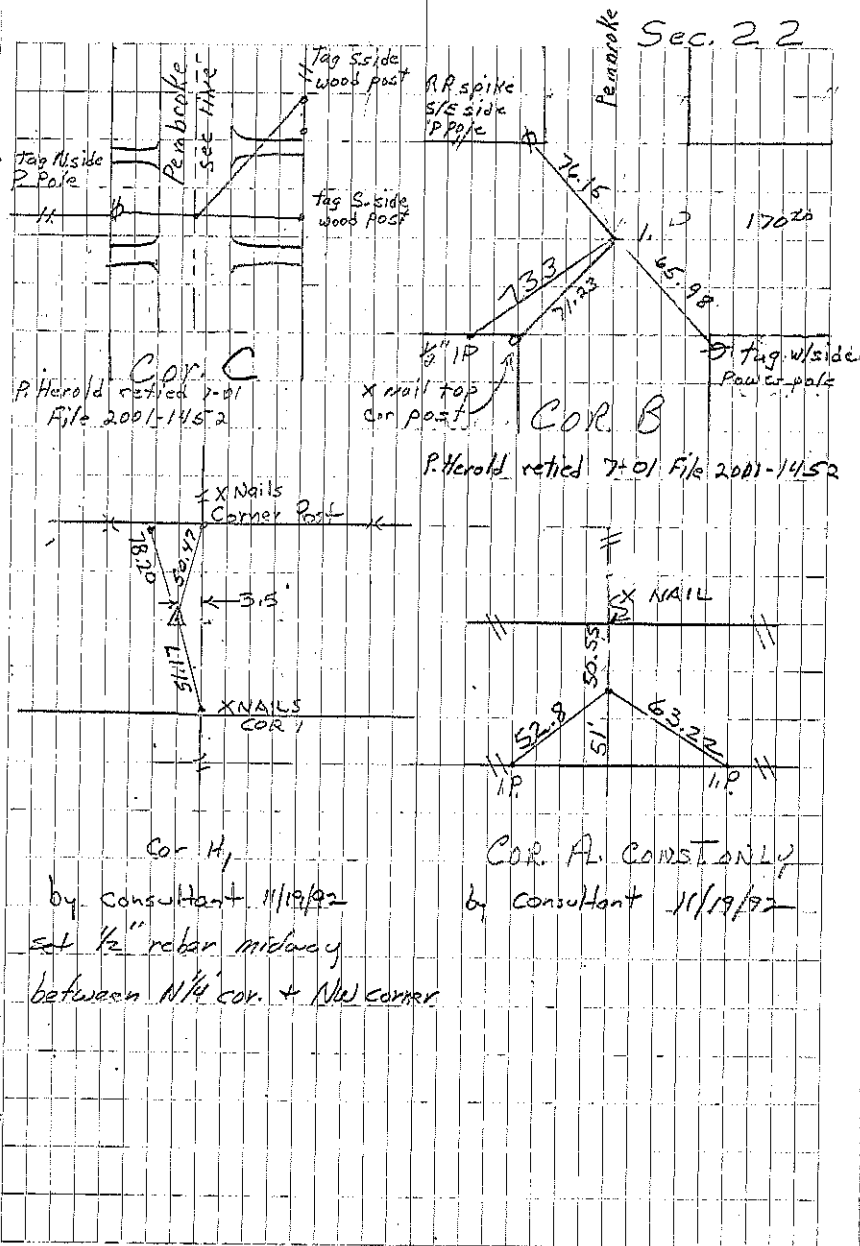 Sec. 22
Pembroke
sec line
Tag S side
wood post
Tag N side
P. Pole
tag S. side
wood post
Cor. C
P. Herold retied 7-01
File 2001-1452
Pembroke
RR spike
S/E side
P Pole
76.15
733
71.23
65.98
170 20
1/2" IP
X nail top
cor post
tag w/side
Power pole
COR. B
P. Herold retied 7-01 File 2001-1452
X Nails
Corner Post
78.20
50.47
3.5'
51.17
X NAILS
COR
Cor H,
by consultant 11/19/92
set 1/2" rebar midway
between N 1/4 cor. + NW corner
X NAIL
50.55
52.8
51'
63.22
I.P.
I.P.
COR. A. CONST. ONLY
by consultant 11/19/92